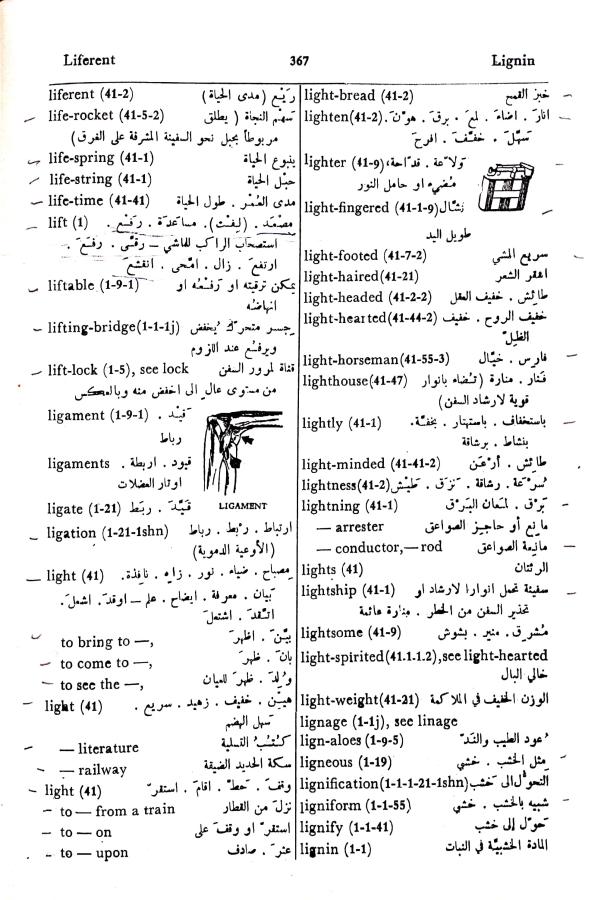 Liferent 367 Lignin
liferent (41-2) رَيْع (مدى الحياة)
life-rocket (41-5-2) سهم النجاة (يطلق
مربوطاً بحبل نحو السفينة المشرفة على الفرق)
life-spring (41-1) ينبوع الحياة
life-string (41-1) حبل الحياة
life-time (41-41) مدى العُمْر . طول الحياة
lift (1) مصعَد . (لِيفْت). مساعَدة . رفع .
استصحاب الراكب للماشي – رقّى . رفَعَ .
ارتفعَ . زال . امّحى . انقشع
liftable (1-9-1) يمكن ترقيته او ترفعُه او
انهاضُه
lifting-bridge(1-1-1j) جسر متحرك يُخفض
ويرفع عند اللزوم
lift-lock (1-5), see lock قناة لمرور السفن
من مستوى عال الى اخفض منه وبالعكس
ligament (1-9-1) قيد .
رباط
ligaments قيود . اربطة .
اوتار العضلات
LIGAMENT
ligate (1-21) قيَّد . ربَط
ligation (1-21-1shn) ارتباط . رَبْط . رباط
(الأوعية الدموية)
light (41) مصباح . ضياء . نور . زاهٍ . نافذة .
بيان . معرفة . ايضاح . علم – اوقدَ . اشعلَ .
اتّقدَ . اشتعلَ
to bring to —, بيّنَ . اظهرَ
to come to —, بانَ . ظهرَ
to see the —, وُلدَ . ظهرَ للعيان
light (41) هيّن . خفيف . زهيد . سريع .
سهل الهضم
— literature كتُبُ التسلية
— railway سكة الحديد الضيقة
light (41) وقفَ . حطَّ . اقامَ . استقرَّ
— to — from a train نزلَ من القطار
— to — on استقرَّ او وقفَ على
— to — upon عثرَ . صادف
light-bread (41-2) خبز القمح
lighten(41-2) انارَ . اضاءَ . لمعَ . برقَ . هوّنَ .
سهّلَ . خفّفَ . افرحَ
lighter (41-9) ولاّعة . قدّاحة،
مُضيء او حامل النور
light-fingered (41-1-9) نشّال
طويل اليد
light-footed (41-7-2) سريع المشي
light-haired(41-21) اشقر الشعر
light-headed (41-2-2) طائش . خفيف العقل
light-hearted(41-44-2) خفيف الروح . خفيف
الظلّ
light-horseman(41-55-3) فارس . خيَّال
lighthouse(41-47) فنار . منارة (تُضاء بانوار
قوية لارشاد السفن)
lightly (41-1) باستخفاف . باستهتار . بخفّة .
بنشاط . برشاقة
light-minded (41-41-2) طائش . أرعَن
lightness(41-2) سُرعة . رشاقة . نَزَق . طَيْش
lightning (41-1) بَرْق . لمعان البَرْق
— arrester مانع أو حاجز الصواعق
— conductor,—rod مانعة الصواعق
lights (41) الرئتان
lightship (41-1) سفينة تحمل انوارا لارشاد او
تحذير السفن من الخطر . منارة عائمة
lightsome (41-9) مُشرِق . منير . بشوش
light-spirited(41.1.1.2),see light-hearted
خالي البال
light-weight(41-21) الوزن الخفيف في الملاكمة
lignage (1-1j), see linage
lign-aloes (1-9-5) عود الطيب والنَّد
ligneous (1-19) مثل الخشب . خشبي
lignification(1-1-1-21-1shn) التحوّل الى خشب
ligniform (1-1-55) شبيه بالخشب . خشبي
lignify (1-1-41) حوّل إلى خشب
lignin (1-1) المادة الخشبيّة في النبات